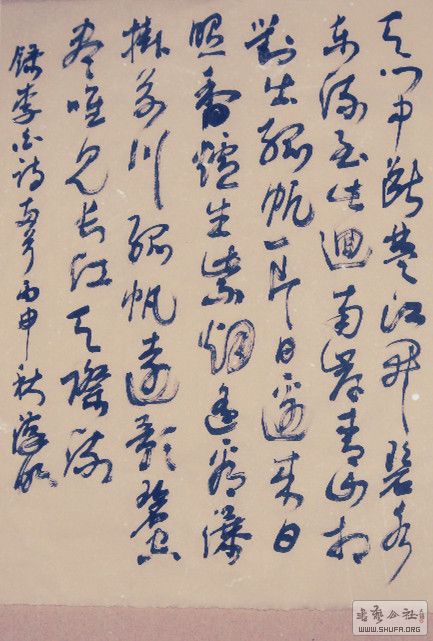 天门中断楚江开碧水
东流至此迴兩岸青山相
對出孤帆一片日邊来日
照香爐生紫烟遥看瀑
掛前川孤帆遠影碧空
尽唯见长江天際流
録李白诗 丙申秋
书艺公社
WWW.SHUFA.ORG